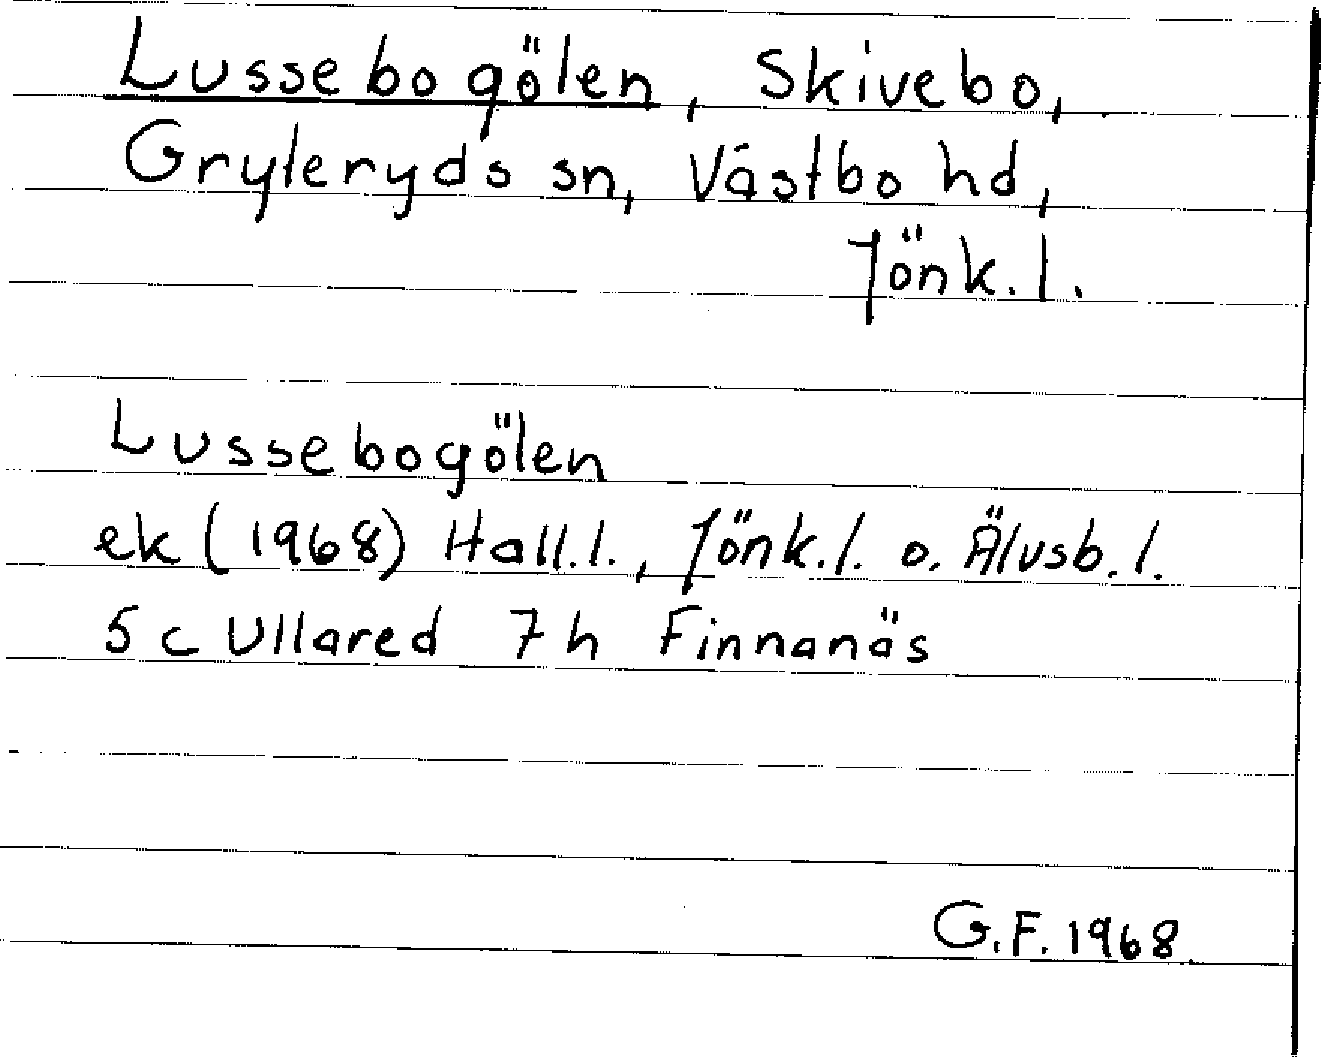 Lussebogölen, Skivebo,
Gryteryds sn, Västbo hd,
Jönk.l.
Lussebogölen
ek (1968) Hall.l., Jönk.l. o. Älvsb.l.
5 c Ullared 7 h Finnanäs
G.F. 1968